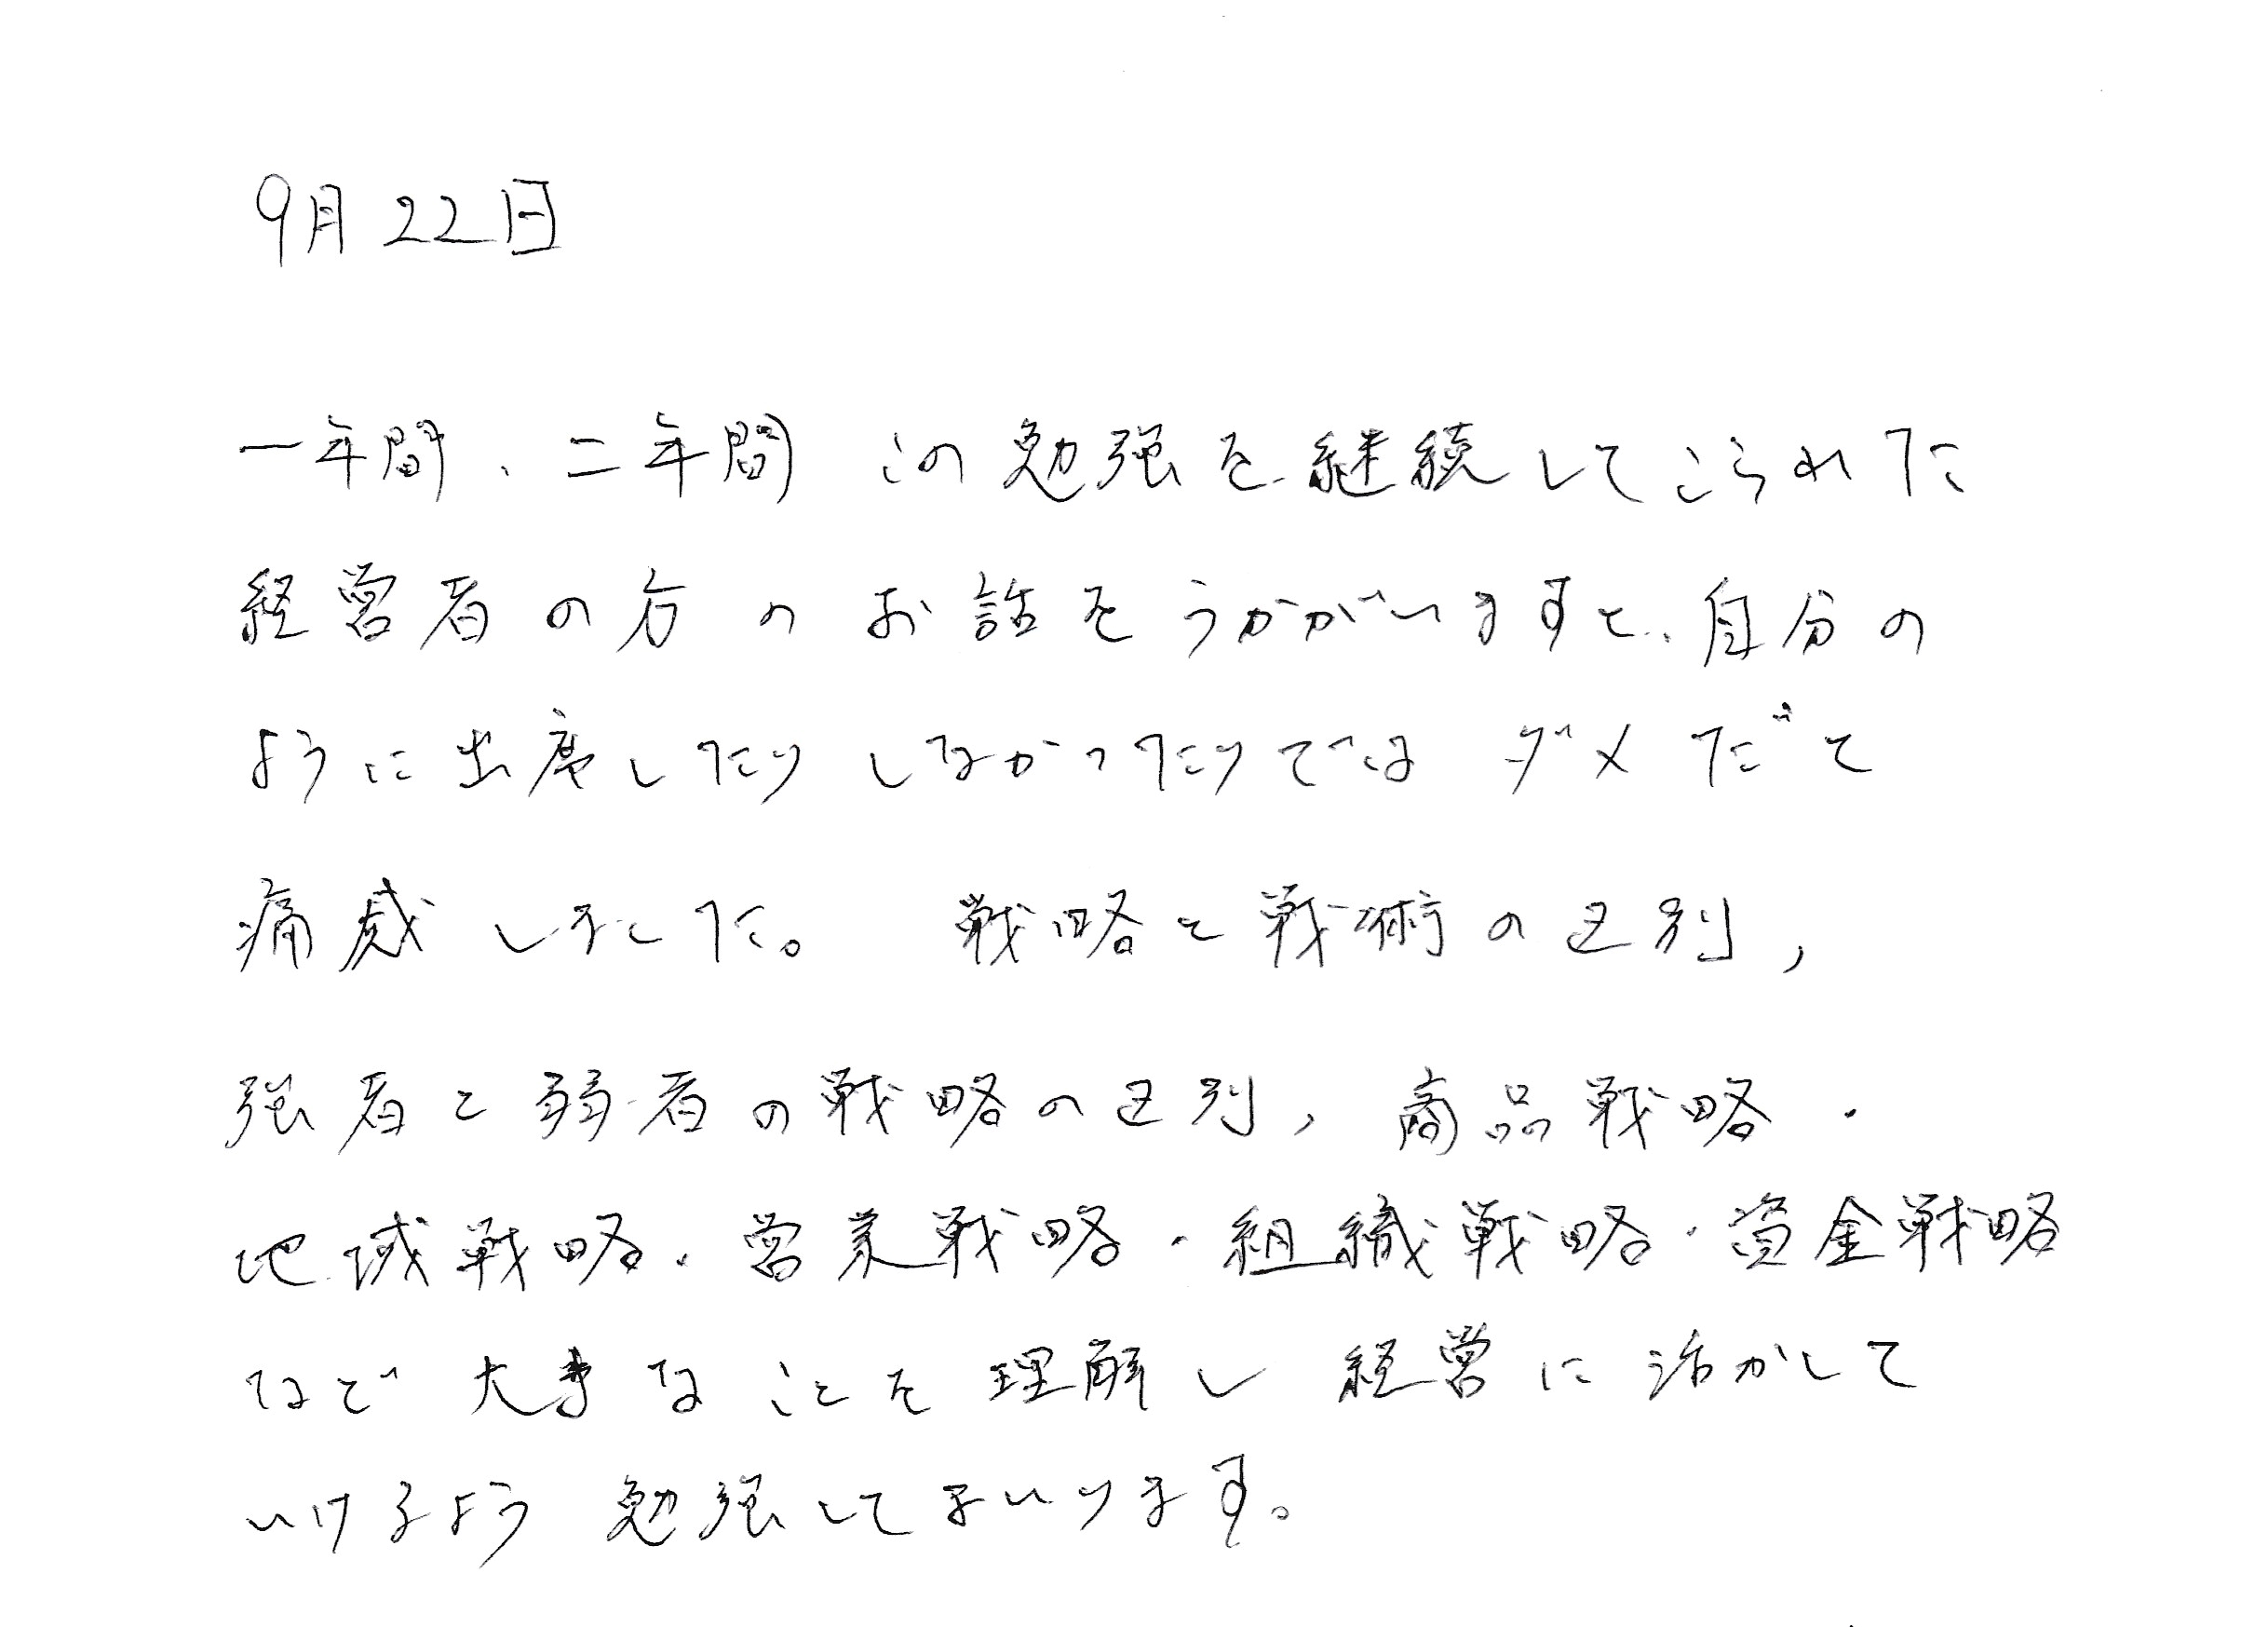 9月22日
一年間、二年間 この勉強を継続してこられた
経営者の方のお話をうかがいますと、自分の
ように出席したりしなかったりではダメだと
痛感しました。 戦略と戦術の区別,
強者と弱者の戦略の区別, 商品戦略・
地域戦略・営業戦略・組織戦略・資金戦略
など大事なことを理解し経営に活かして
いけるよう 勉強してまいります。